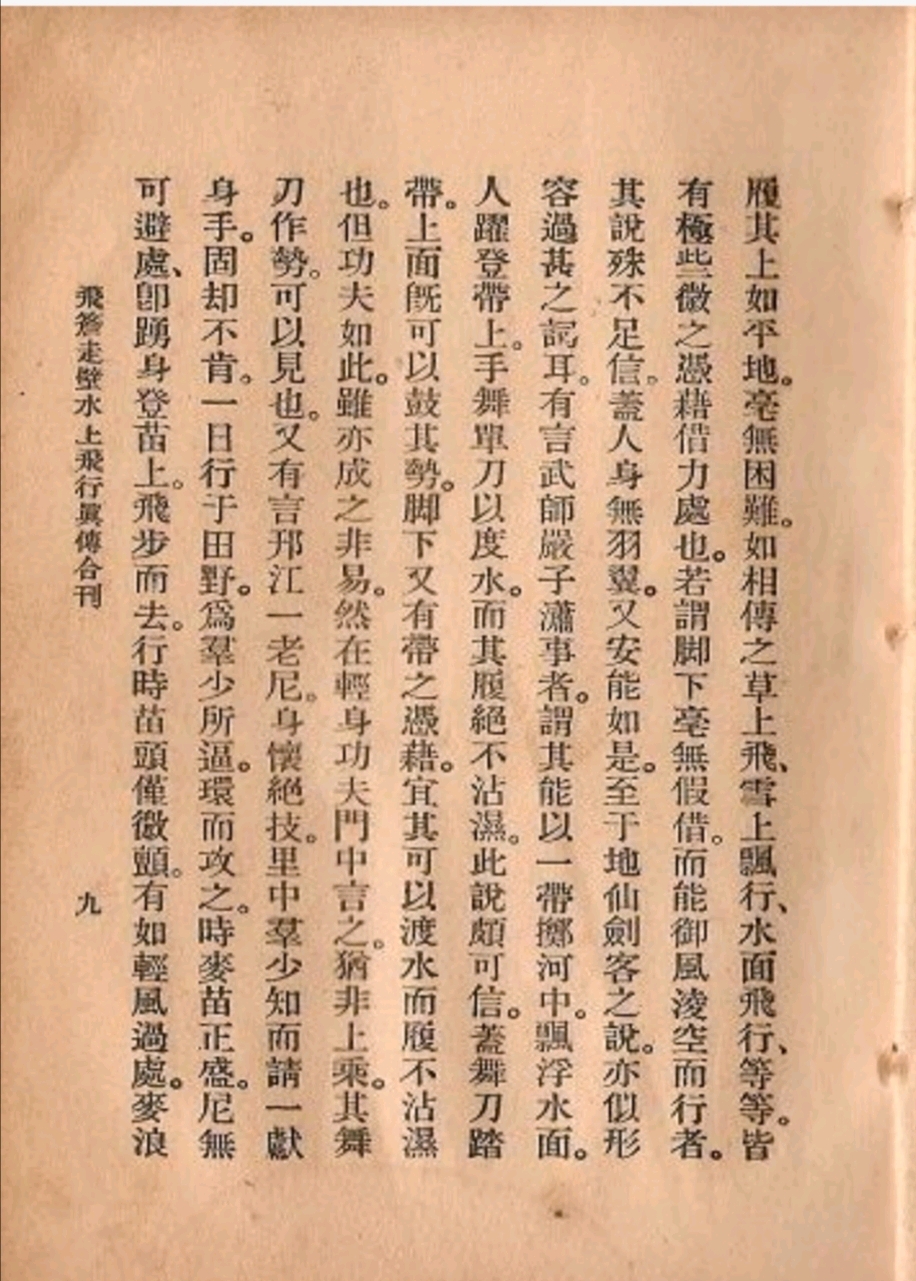 履其上如平地。毫無困難。如相傳之草上飛、雪上飄行、水面飛行、等等。皆
有極些微之憑藉借力處也。若謂脚下毫無假借。而能御風淩空而行者。
其說殊不足信。蓋人身無羽翼。又安能如是。至于地仙劍客之說。亦似形
容過甚之詞耳。有言武師嚴子瀟事者。謂其能以一帶擲河中。飄浮水面。
人躍登帶上。手舞單刀以度水。而其履絕不沾濕。此說頗可信。蓋舞刀踏
帶。上面旣可以鼓其勢。脚下又有帶之憑藉。宜其可以渡水而履不沾濕
也。但功夫如此。雖亦成之非易。然在輕身功夫門中言之。猶非上乘。其舞
刀作勢。可以見也。又有言邗江一老尼。身懷絕技。里中羣少知而請一獻
身手。固却不肯。一日行于田野。爲羣少所逼。環而攻之。時麥苗正盛。尼無
可避處、卽踴身登苗上。飛步而去。行時苗頭僅微顫。有如輕風過處。麥浪
飛簷走壁水上飛行眞傳合刊
九